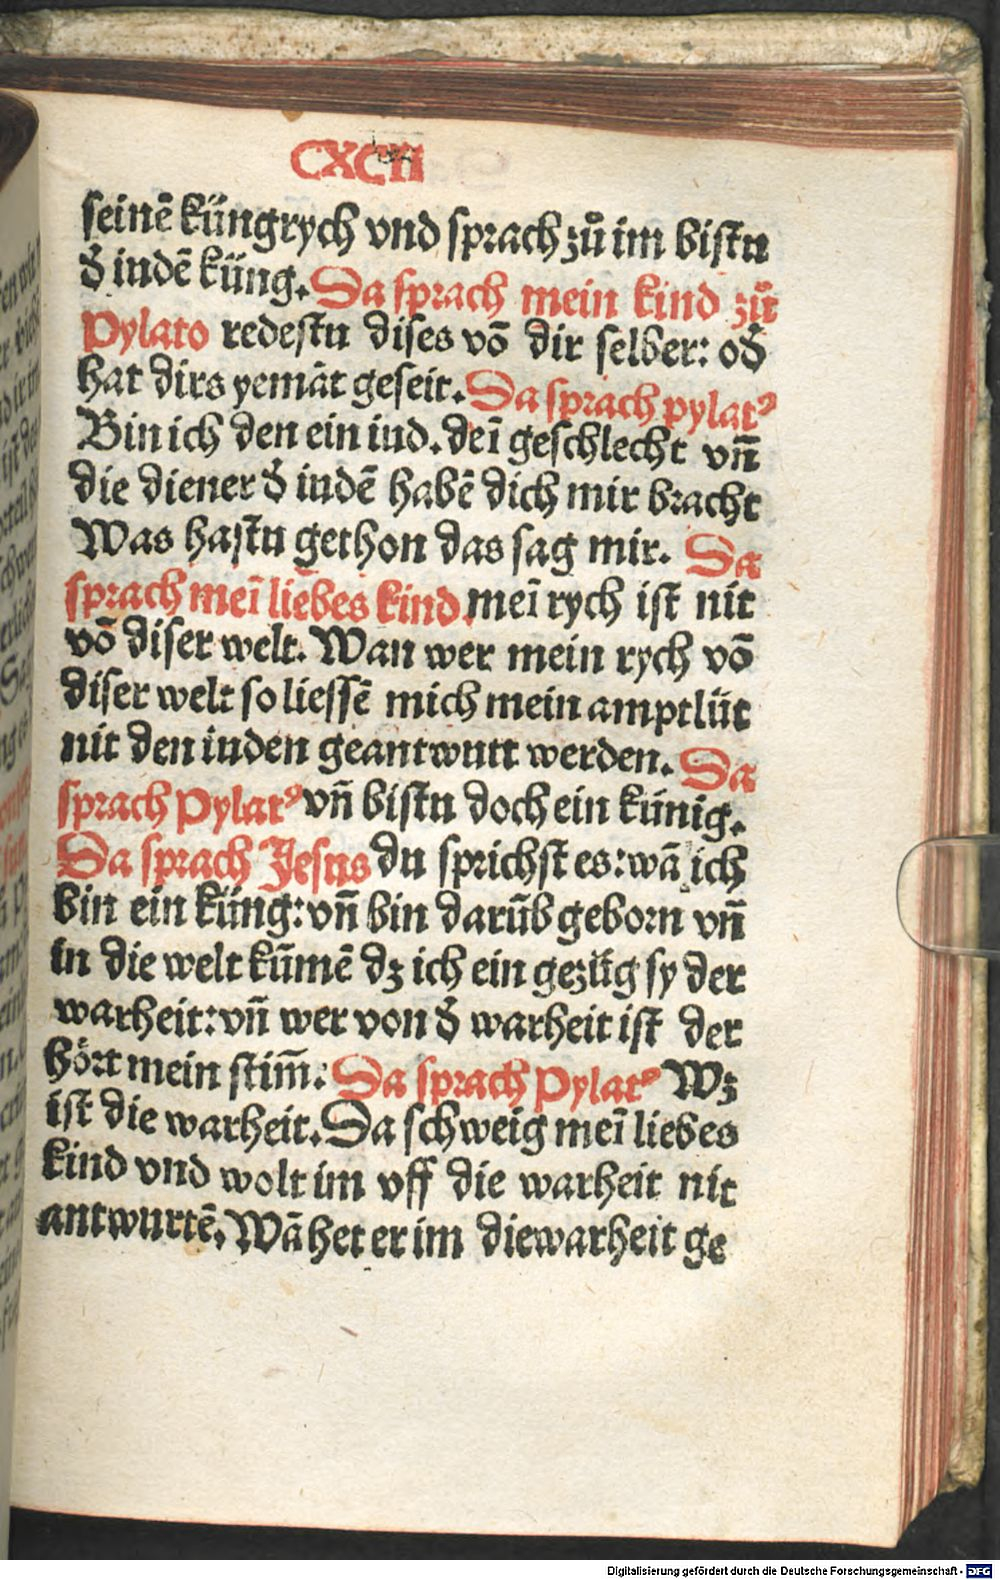 CXCII
seinē küngrych vnd sprach zů im bistu
đ iudē küng. Da sprach mein kind zů
Pylato redestu dises vō dir selber: ođ
hat dirs yemāt geseit. Da sprach pylatꝰ
Bin ich den ein iud. deī geschlecht vn̄
die diener đ iudē habē dich mir bracht
Was hastu gethon das sag mir. Da
sprach meī liebes kind. meī rych ist nit
vō diser welt. Wan wer mein rych vō
diser welt so liessē mich mein amptlüt
nit den iuden geantwutt werden. Da
sprach Pylatꝰ vn̄ bistu doch ein künig.
Da sprach Jesus du sprichst es: wā ich
bin ein küng: vn̄ bin darūb geborn vn̄
in die welt kūmē dꝫ ich ein gezüg sy der
warheit: vn̄ wer von đ warheit ist der
hört mein stim̄: Da sprach Pylatꝰ Wꝫ
ist die warheit. Da schweig meī liebes
kind vnd wolt im vff die warheit nit
antwurtē. Wā het er im die warheit ge
Digitalisierung gefördert durch die Deutsche Forschungsgemeinschaft - DFG